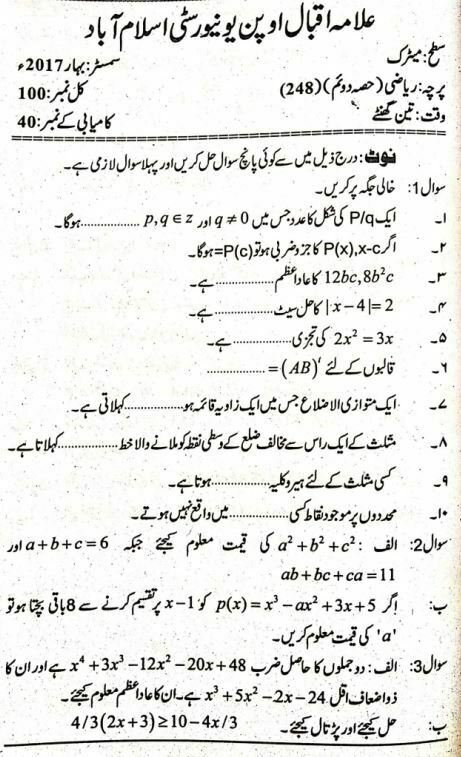 علامہ اقبال اوپن یونیورسٹی اسلام آباد
سطح: میٹرک سمسٹر: بہار 2017ء
پرچہ: ریاضی (حصہ دوئم) (248) کل نمبر: 100
وقت: تین گھنٹے کامیابی کے نمبر: 40
نوٹ: درج ذیل میں سے کوئی پانچ سوال حل کریں اور پہلا سوال لازمی ہے۔
سوال 1: خالی جگہ پر کریں۔
۱۔ ایک P/q کی شکل کا عدد جس میں q ≠ 0 اور p, q ∈ z ............... ہوگا۔
۲۔ اگر P(x), x-c کا جزو ضربی ہو تو P(c)= ہوگا۔
۳۔ 12bc, 8b²c کا عاد اعظم ............... ہے۔
۴۔ |x − 4| = 2 کا حل سیٹ ............... ہے۔
۵۔ 2x² = 3x کی تجزی ............... ہے۔
۶۔ قالبوں کے لئے (AB)ᵗ = ...............
۷۔ ایک متوازی الاضلاع جس میں ایک زاویہ قائمہ ہو ............... کہلاتی ہے۔
۸۔ مثلث کے ایک راس سے مخالف ضلع کے وسطی نقطہ کو ملانے والا خط ............... کہلاتا ہے۔
۹۔ کسی مثلث کے لئے ہیرو کلیہ ............... ہوتا ہے۔
۱۰۔ محددوں پر موجود نقاط کسی ............... میں واقع نہیں ہوتے۔
سوال 2: الف: a² + b² + c² کی قیمت معلوم کیجئے جبکہ a + b + c = 6 اور
ab + bc + ca = 11
ب: اگر p(x) = x³ − ax² + 3x + 5 کو x − 1 پر تقسیم کرنے سے 8 باقی بچتا ہو تو
'a' کی قیمت معلوم کریں۔
سوال 3: الف: دو جملوں کا حاصل ضرب x⁴ + 3x³ − 12x² − 20x + 48 ہے اور ان کا
ذواضعاف اقل x³ + 5x² − 2x − 24 ہے۔ ان کا عاد اعظم معلوم کیجئے۔
ب: حل کیجئے اور پڑتال کیجئے۔ 4/3(2x + 3) ≥ 10 − 4x/3